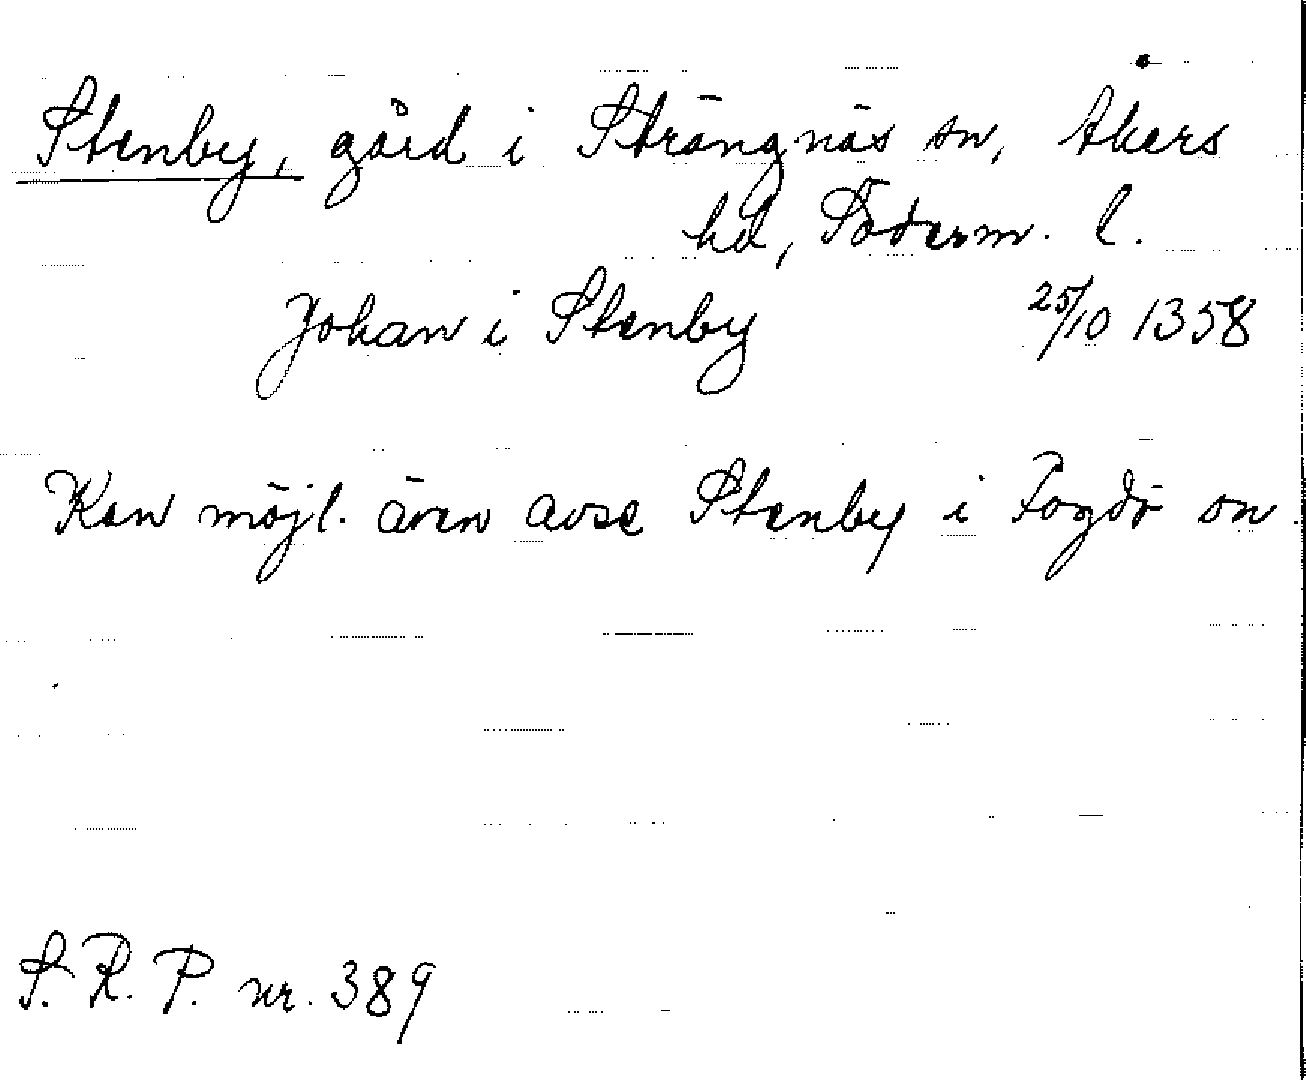 Stenby, gård i Strängnäs sn, Åkers
hd, Söderm. l.
Johan i Stenby 25/10 1358
Kan möjl. även avse Stenby i Fogdö sn.
S. R. P. nr. 389